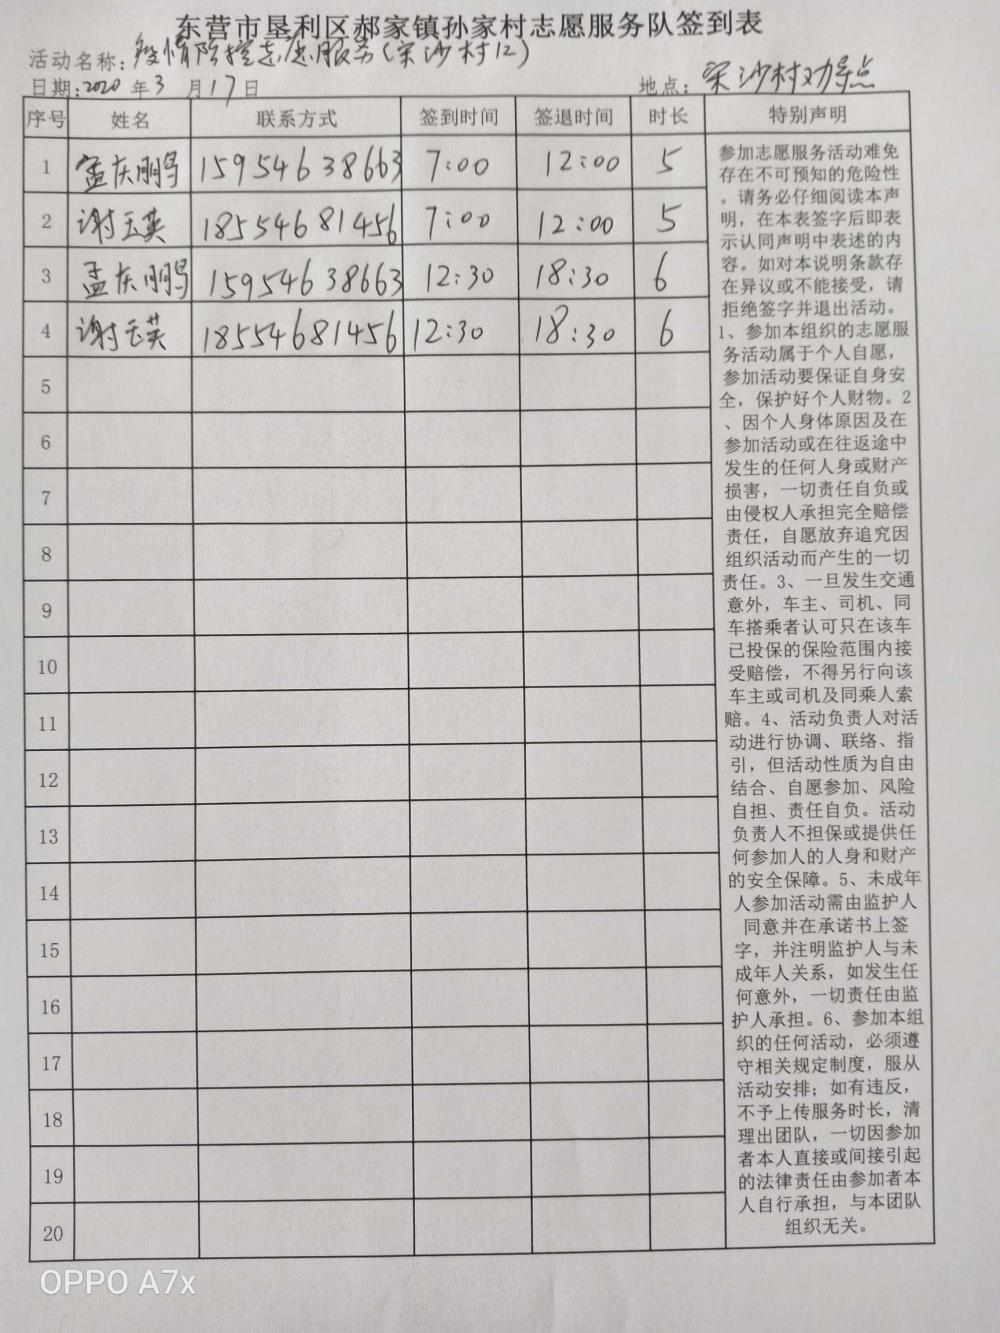 东营市垦利区郝家镇孙家村志愿服务队签到表
活动名称：疫情防控志愿服务(宋沙村12)
日期：2020 年 3 月 17 日 地点：宋沙村劝导点
序号 姓名 联系方式 签到时间 签退时间 时长 特别声明
1 孟庆鹏 15954638663 7:00 12:00 5
2 谢玉英 18554681456 7:00 12:00 5
3 孟庆鹏 15954638663 12:30 18:30 6
4 谢玉英 18554681456 12:30 18:30 6
5
6
7
8
9
10
11
12
13
14
15
16
17
18
19
20
参加志愿服务活动难免
存在不可预知的危险性
。请务必仔细阅读本声
明，在本表签字后即表
示认同声明中表述的内
容。如对本说明条款存
在异议或不能接受，请
拒绝签字并退出活动。
1、参加本组织的志愿服
务活动属于个人自愿，
参加活动要保证自身安
全，保护好个人财物。2
、因个人身体原因及在
参加活动或在往返途中
发生的任何人身或财产
损害，一切责任自负或
由侵权人承担完全赔偿
责任，自愿放弃追究因
组织活动而产生的一切
责任。3、一旦发生交通
意外，车主、司机、同
车搭乘者认可只在该车
已投保的保险范围内接
受赔偿，不得另行向该
车主或司机及同乘人索
赔。4、活动负责人对活
动进行协调、联络、指
引，但活动性质为自由
结合、自愿参加、风险
自担、责任自负。活动
负责人不担保或提供任
何参加人的人身和财产
的安全保障。5、未成年
人参加活动需由监护人
同意并在承诺书上签
字，并注明监护人与未
成年人关系，如发生任
何意外，一切责任由监
护人承担。6、参加本组
织的任何活动，必须遵
守相关规定制度，服从
活动安排；如有违反，
不予上传服务时长，清
理出团队，一切因参加
者本人直接或间接引起
的法律责任由参加者本
人自行承担，与本团队
组织无关。
OPPO A7x